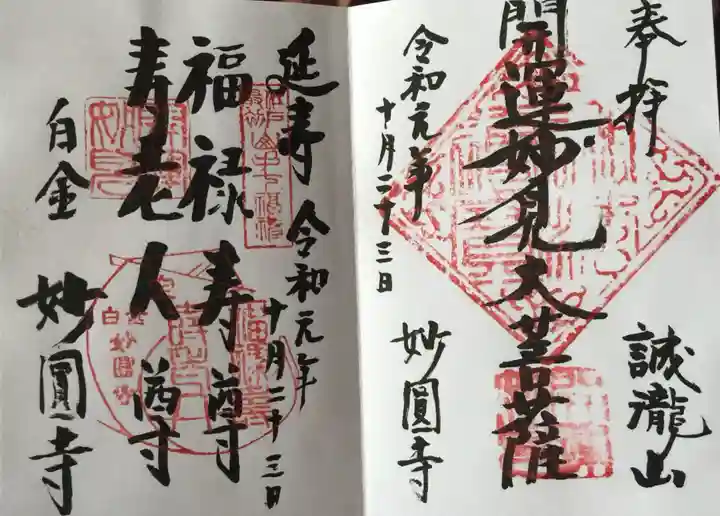 奉拝
誠瀧山
開運妙見大菩薩
令和元年
十月二十三日
妙圓寺
延寿
令和元年
十月二十三日
福禄寿尊
寿老人尊
白金
妙圓寺